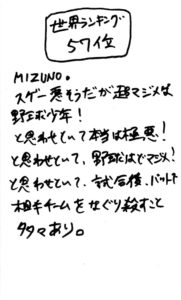 世界ランキング
57位
MIZUNO。
スゲー悪そうだが超マジメな
野球少年!
と思わせといて本当は極悪!
と思わせといて、野球だけはマジメ!
と思わせといて、試合後、バットで
相手チームをなぐり殺すこと
多々あり。